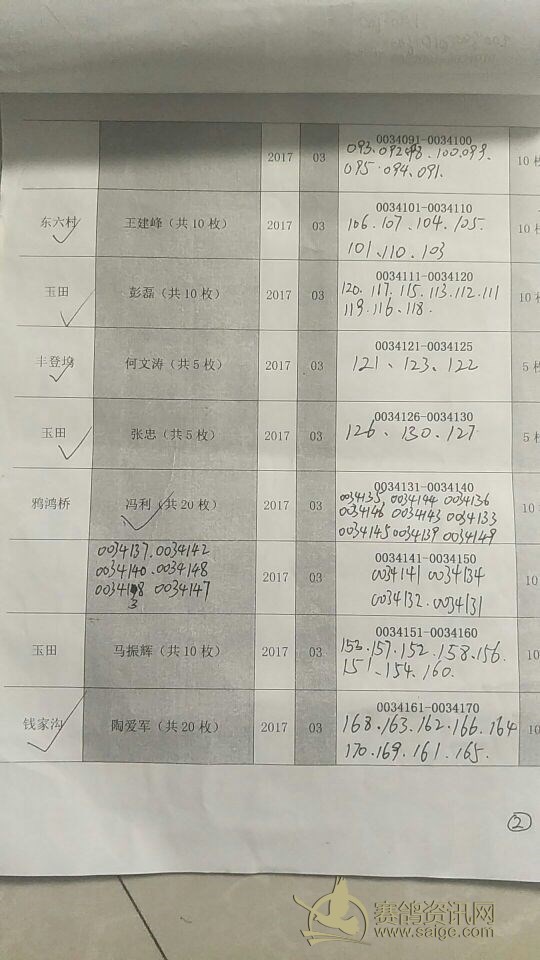 2017 03 0034091-0034100
093.092.098.100.099.
095.094.091.
10
东六村 王建峰（共10枚） 2017 03 0034101-0034110
106.107、104.105.
101、110.103
10
玉田 彭磊（共10枚） 2017 03 0034111-0034120
120.117.115.113.112.111
119.116.118.
10
丰登坞 何文涛（共5枚） 2017 03 0034121-0034125
121、123、122
5枚
玉田 张忠（共5枚） 2017 03 0034126-0034130
126.130.127
5
鸦鸿桥 冯利（共20枚） 2017 03 0034131-0034140
0034135 0034144 0034136
0034146 0034143 0034133
0034145 0034139 0034149
10
0034137.0034142
0034140.0034148
0034138 0034147
2017 03 0034141-0034150
0034141 0034134
0034132.0034131
10
玉田 马振辉（共10枚） 2017 03 0034151-0034160
153.157.152.158.156.
151、154.160.
10
钱家沟 陶爱军（共20枚） 2017 03 0034161-0034170
168.163.162.166.164
170.169.161.165.
10
②
赛鸽资讯网
www.saigc.com